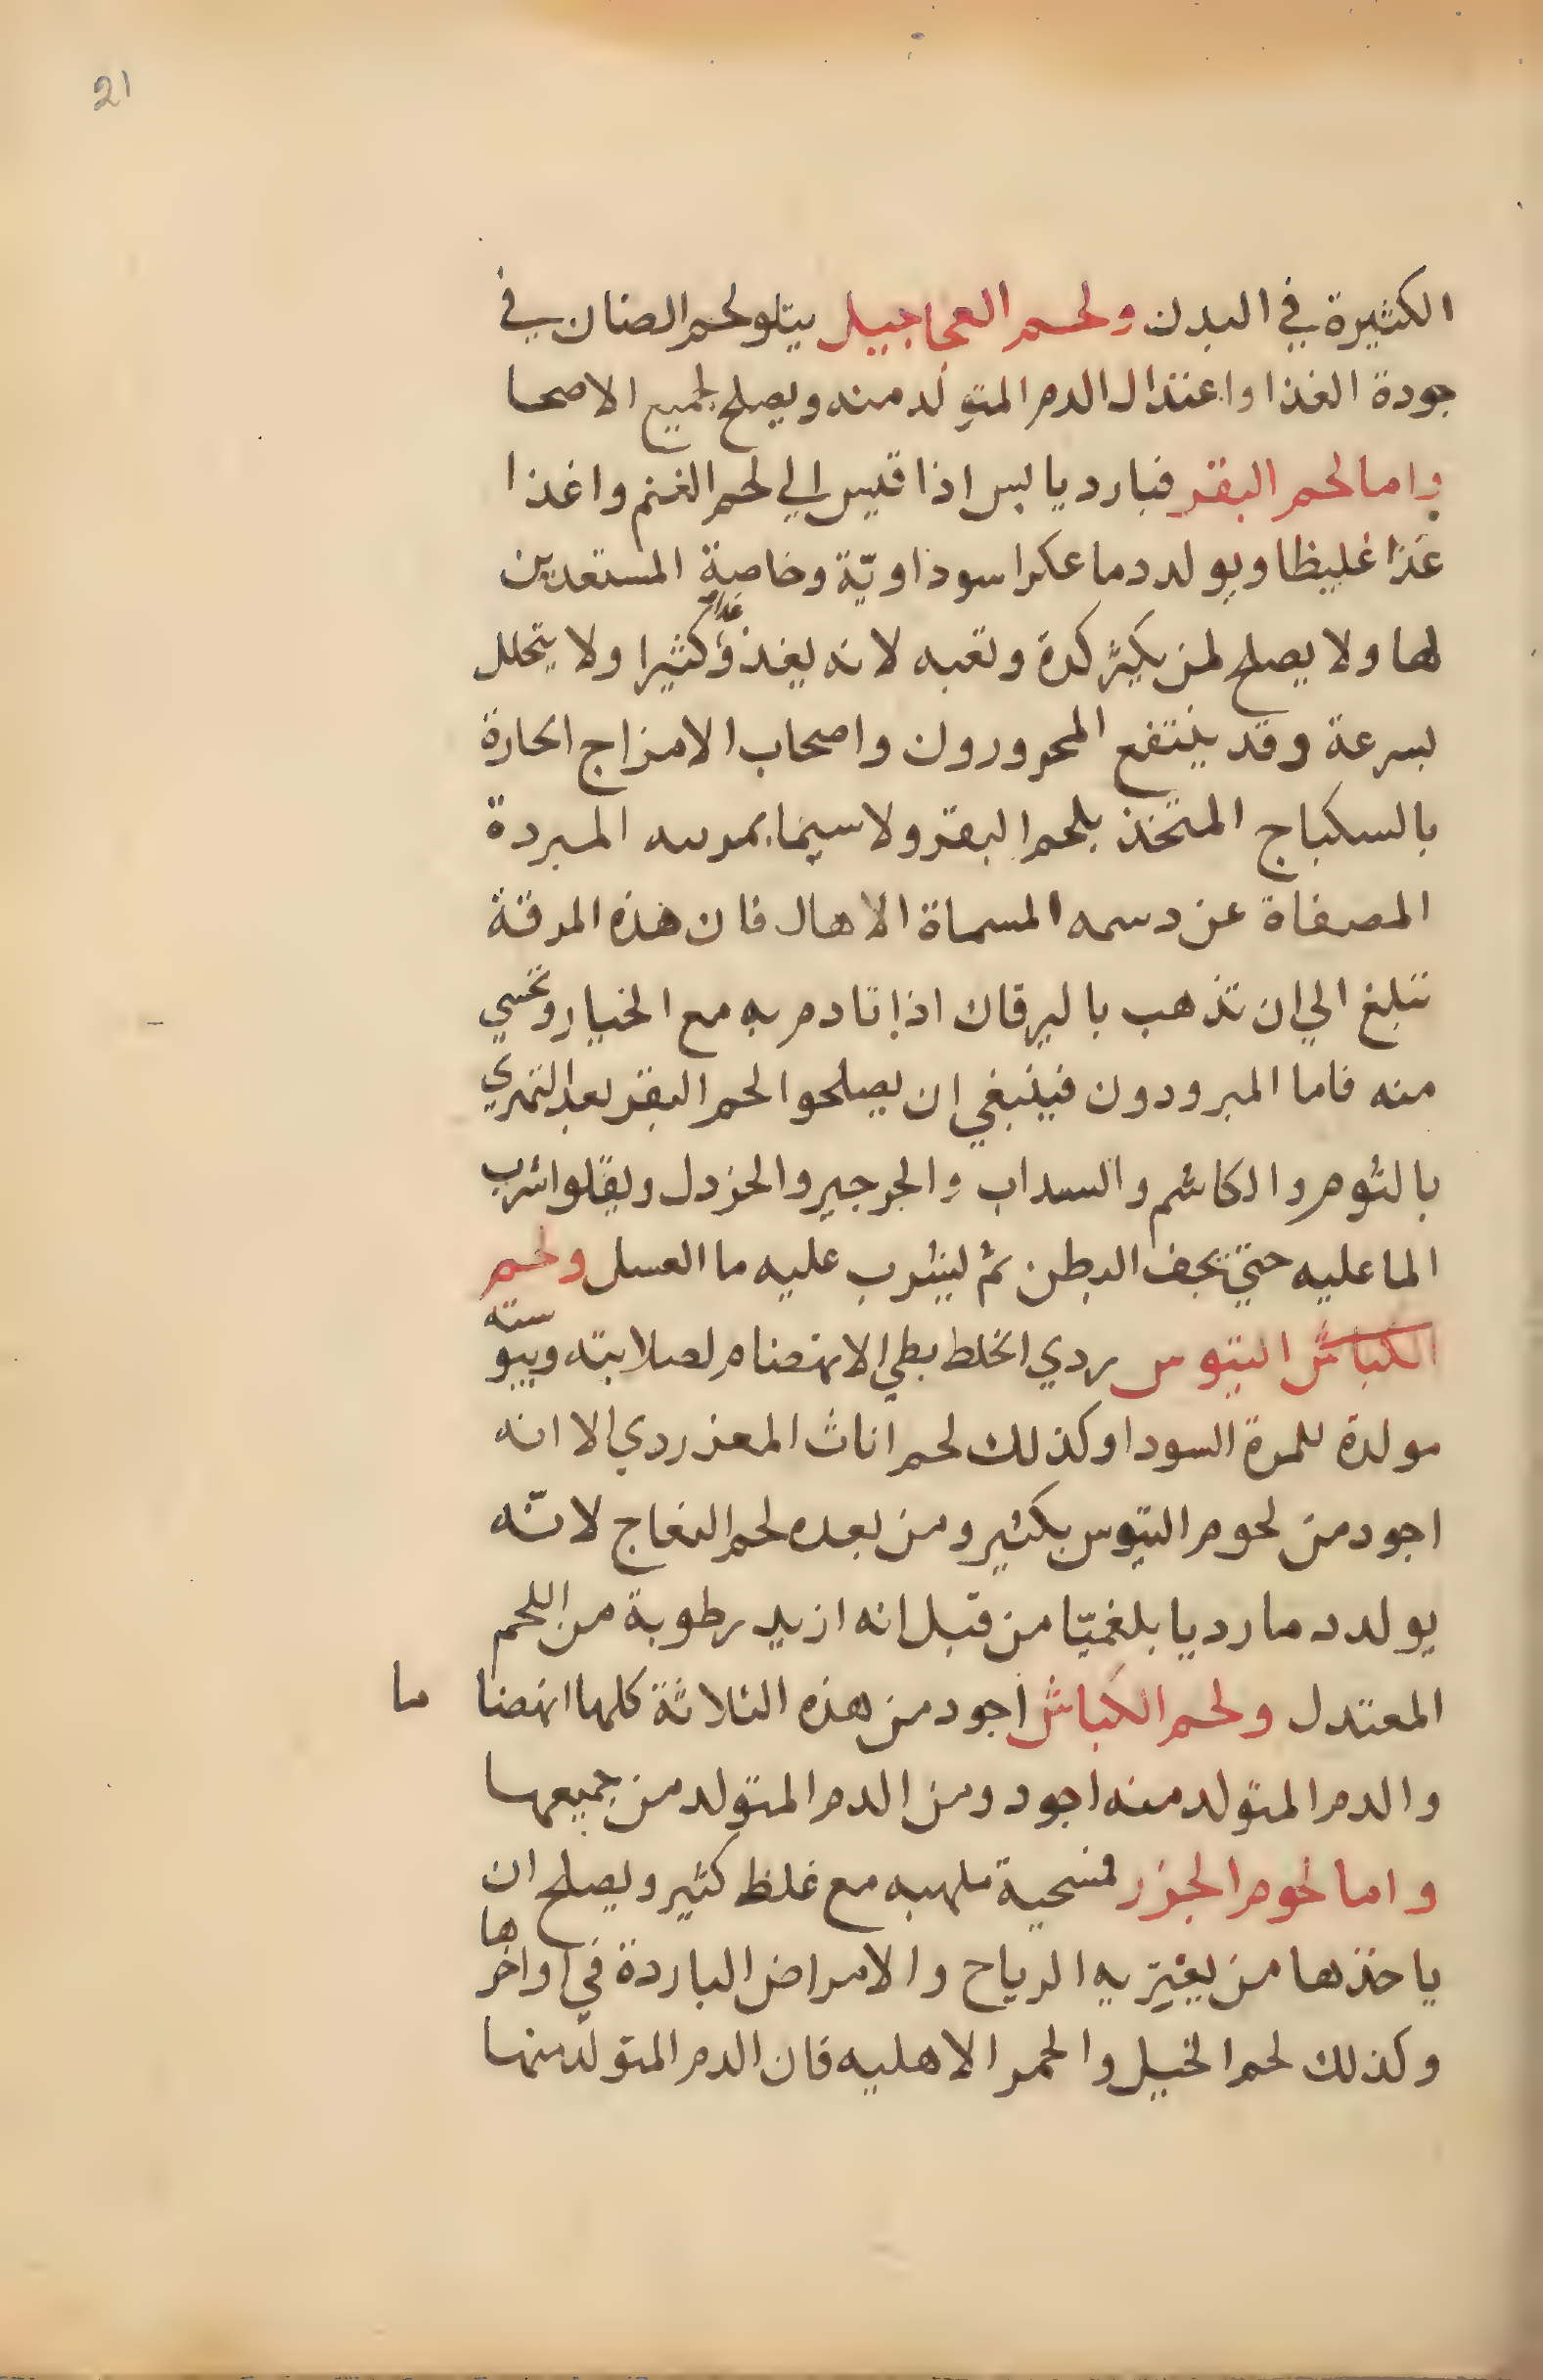 21
الكثيرة في البدن ولحم العجاجيل يتلو لحم الضان في
جودة الغذا واعتدال الدم المتولد منه ويصلح لجميع الاصحا
واما لحم البقر فبارد يابس اذا قيس الي لحم الغنم واغذا
غذا غليظا ويولد دما عكرا سوداويّة وخاصة المستعدين
لها ولا يصلح لمن يكثر كدة وتعبه لانه يغذو غذا كثيرا ولا يتحلل
بسرعة وقد ينتفع المحرورون واصحاب الامزاج الحارة
بالسكباج المتخذ بلحم البقر ولا سيما بمرقه المبردة
المصفاة عن دسمه المسماة الاهال فان هذه المرقة
تبلغ الي ان تذهب باليرقان اذا تادم به مع الخيار وتحسي
منه فاما المبرودون فينبغي ان يصلحوا لحم البقر بعد التهري
بالثوم والكاشم والسداب والجرجير والخردل ويقلوا شرب
الما عليه حتي يجف البطن ثم ليشرب عليه ما العسل ولحم
الكباش التيوس ردي الخلط بطي الانهضام لصلابته ويبوسته
مولدة للمرة السودا وكذلك لحم اناث المعز ردي الا انه
اجود من لحوم التيوس بكثير ومن بعده لحم النعاج لانّه
يولد دما رديا بلغميّا من قبل انه ازيد رطوبة من اللحم
المعتدل ولحم الكباش اجود من هذه الثلاثة كلها انهضا ما
والدم المتولد منه اجود ومن الدم المتولد من جميعها
واما لحوم الجزر فمسخنة ملهبه مع غلظ كثير ويصلح ان
ياخذها من يعتريه الرياح والامراض الباردة في اواخرها
وكذلك لحم الخيل والحمر الاهليه فان الدم المتولد منها